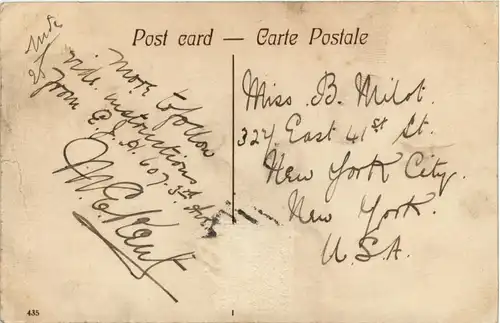 Post card — Carte Postale
25
More to follow
vide instructions
from E. J. H. 607. 3rd Ave.
M. E. Kent
Miss B. Milot.
327 East 41st St.
New York City.
New York.
U.S.A.
435
1